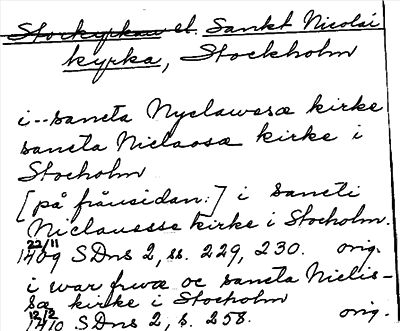 Storkyrkan el. Sankt Nicolai
kyrka, Stockholm
i -- sancta Nyclawesæ kirke
sancta Niclaosæ kirke i
Stocholm
[på frånsidan:] i sancti
Niclausesse kirke i Stocholm.
22/11
1409 SDns 2, ss. 229, 230. orig.
i war frwæ oc sancta Nielis-
sæ kirke i Stocholm
12/12
1410 SDns 2, s. 258. orig.